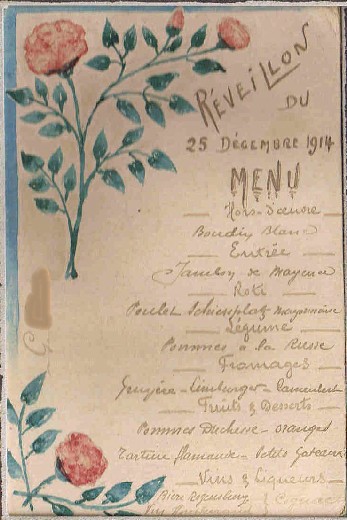 RÉVEILLON
DU
25 DÉCEMBRE 1914
MENU
Hors-d'œuvre
Boudin Blanc
Entrée
Jambon de Mayence
Roti
Poulet mayonnaise
Légume
Pommes à la Russe
Fromages
Gruyère - Limburger - Camembert
Fruits & Desserts
Pommes Duchesse - oranges
Tartine flamande - Petits Gateaux
Vins & Liqueurs
Bière & Cognac